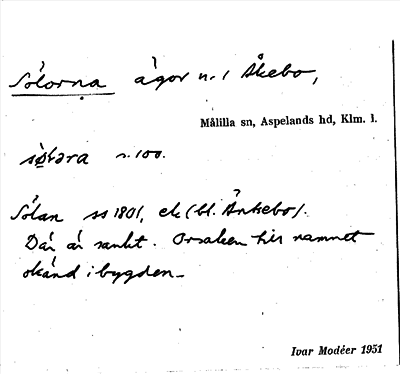 Sölorna ägor n. 1 Åkebo,
Målilla sn, Aspelands hd, Klm. l.
n. 100.
Sölan ss 1801, ek (bl. Änkebo).
Där är sankt. Orsaken till namnet
okänd i bygden.
Ivar Modéer 1951